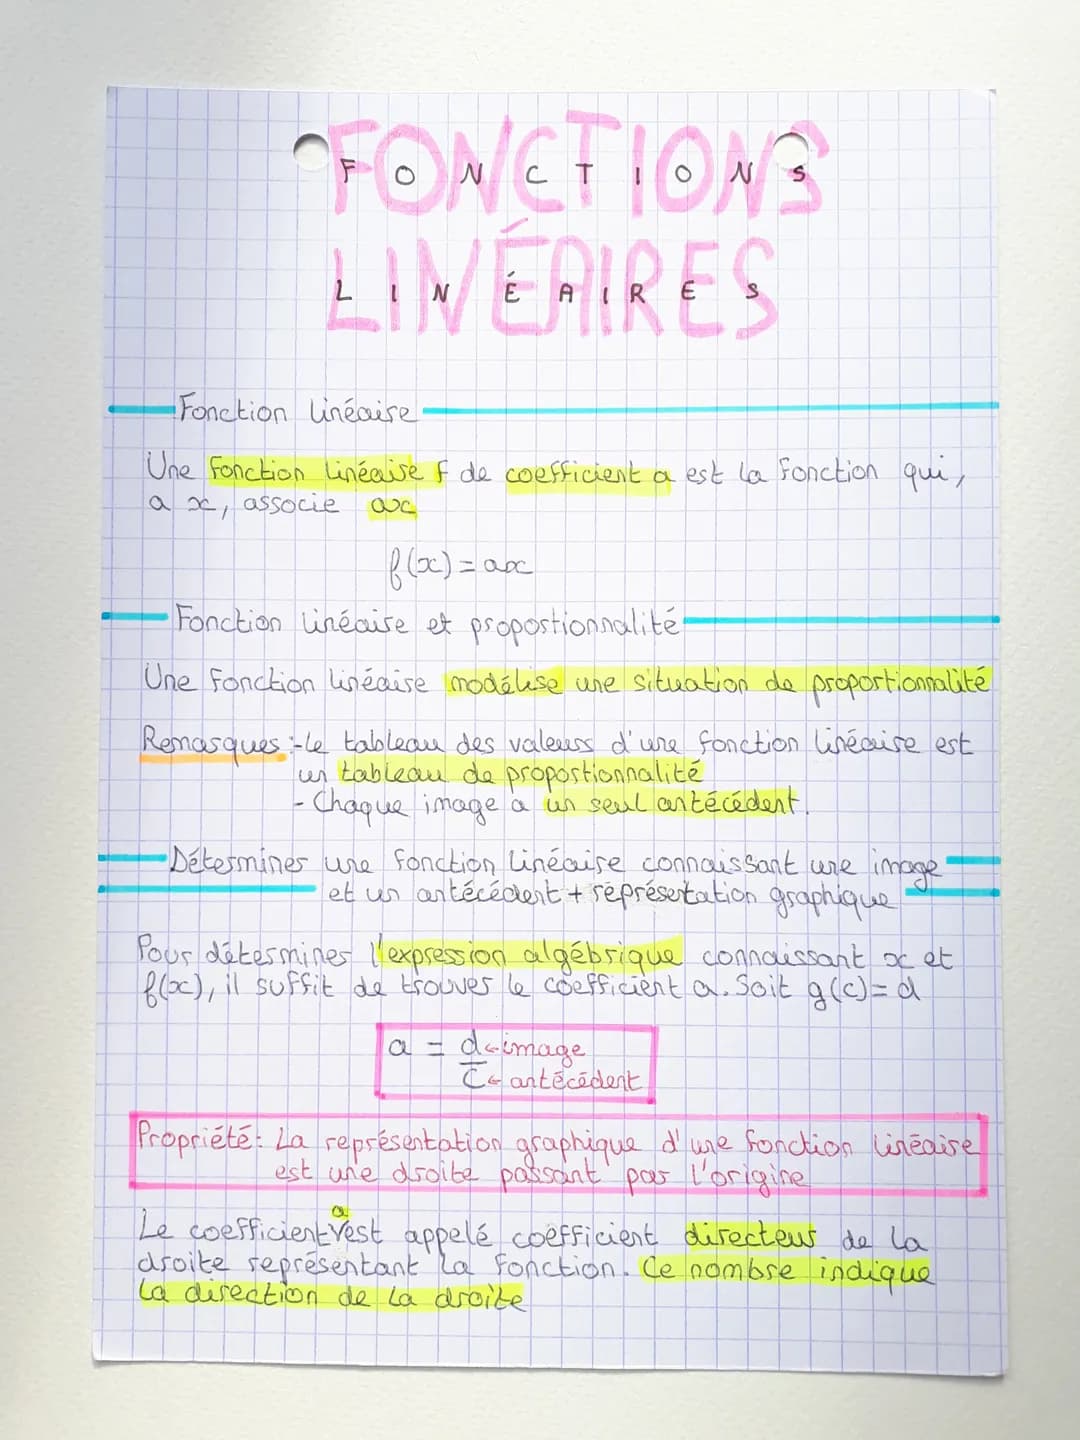 FONCTIONS
LINÉAIRES
Fonction linéaire
Une fonction linéaire f de coefficient a est la fonction qui,
a x, associe ax
f(x) = ax
Fonction linéaire et proportionnalité
Une fonction linéaire modélise une situation de proportionnalité
Remarques :-Le tableau des valeurs d'une fonction linéaire est
un tableau de proportionnalité
- Chaque image a un seul antécédent.
Déterminer une fonction linéaire connaissant une image
et un antécédent + représentation graphique
Pour déterminer l'expression algébrique connaissant x et
f(x), il suffit de trouver le coefficient a. Soit g(c) = d
a = d ← image
c ← antécédent
Propriété : La représentation graphique d'une fonction linéaire
est une droite passant par l'origine
Le coefficient a est appelé coefficient directeur de la
droite représentant la fonction. Ce nombre indique
la direction de la droite